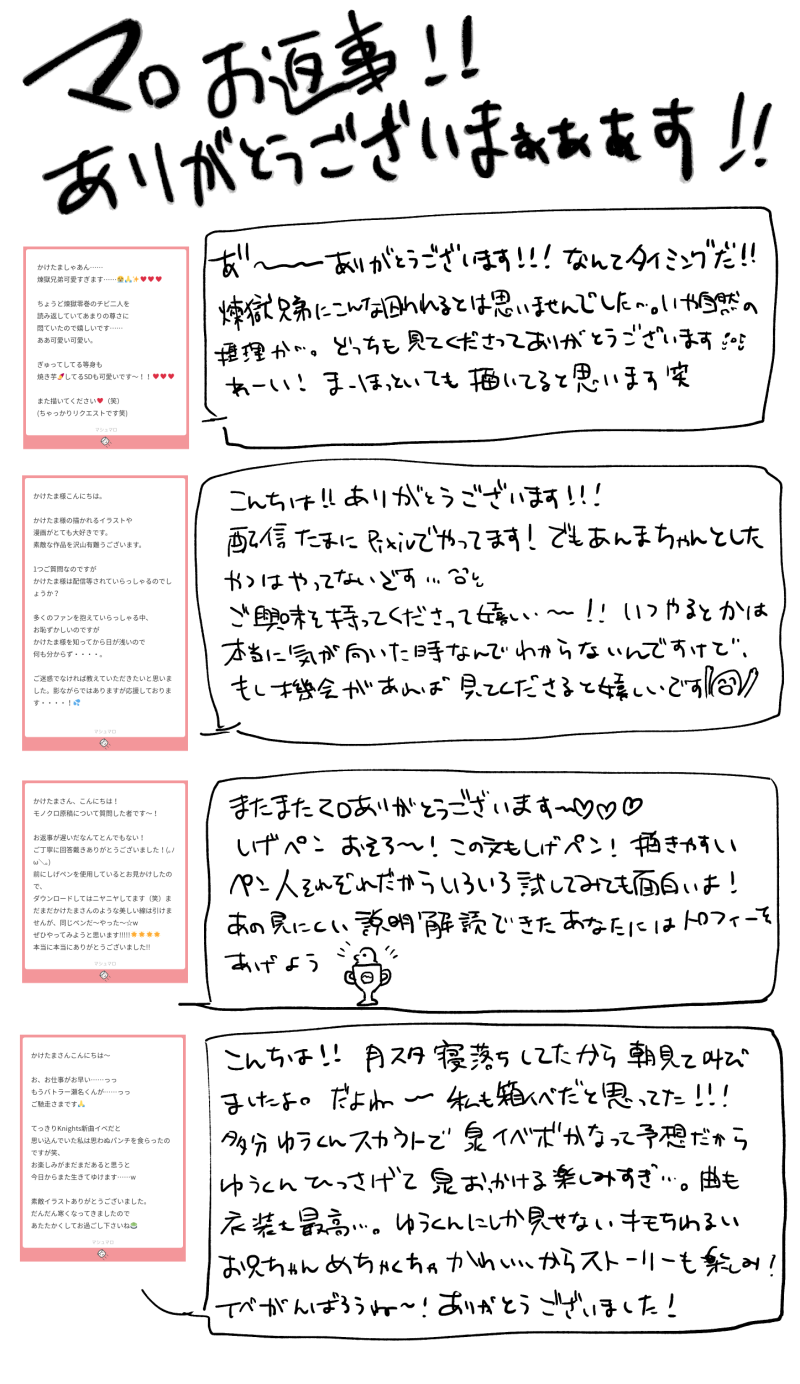 マロお返事!!
ありがとうございまぁぁぁす!!
かけたましゃあん……
煉獄兄弟可愛すぎます……😭🙏✨♥♥♥
ちょうど煉獄零巻のチビ二人を
読み返していてあまりの尊さに
悶ていたので嬉しいです……
ああ可愛い可愛い。
ぎゅってしてる等身も
焼き芋🍠してるSDも可愛いです〜！！♥♥♥
また描いてください♥（笑）
(ちゃっかりリクエストです笑)
マシュマロ
あ゛〜ーありがとうございます!!! なんてタイミングだ!!
煉獄兄弟にこんな囚われるとは思いませんでした…。いや自然の
摂理か…。どっちも見てくださってありがとうございます
わーい! まーほっといても描いてると思います笑
かけたま様こんにちは。
かけたま様の描かれるイラストや
漫画がとても大好きです。
素敵な作品を沢山有難うございます。
1つご質問なのですが
かけたま様は配信等されていらっしゃるのでし
ょうか？
多くのファンを抱えていらっしゃる中、
お恥ずかしいのですが
かけたま様を知ってから日が浅いので
何も分からず・・・・。
ご迷惑でなければ教えていただきたいと思いま
した。影ながらではありますが応援しておりま
す・・・・！💦
マシュマロ
こんちは!! ありがとうございます!!!
配信 たまにPixivでやってます! でもあんまちゃんとした
かつはやってないです…
ご興味を持ってくださって嬉しい〜!! いつやるとかは
本当に気が向いた時なんでわからないんですけど、
もし機会があれば見てくださると嬉しいです
かけたまさん、こんにちは！
モノクロ原稿について質問した者です〜！
お返事が遅いだなんてとんでもない！
ご丁寧に回答戴きありがとうございました！(｡ﾉ
ω＼｡)
前にしげペンを使用しているとお見かけしたの
で、
ダウンロードしてはニヤニヤしてます（笑）ま
だまだかけたまさんのような美しい線は引けま
せんが、同じペンだ〜やった〜☆w
ぜひやってみようと思います!!!!!
本当に本当にありがとうございました!!
マシュマロ
またまたマロありがとうございます〜♡♡♡
しげペン おそろ〜! この文もしげペン! 描きやすい
ペン人それぞれだからいろいろ試してみても面白いよ!
あの見にくい説明解読できたあなたにはトロフィーを
あげよう
かけたまさんこんにちは〜
お、お仕事がお早い……っっ
もうバトラー瀬名くんが……っっ
ご馳走さまです🙏
てっきりKnights新曲イベだと
思い込んでいた私は思わぬパンチを食らったの
ですが笑、
お楽しみがまだまだあると思うと
今日からまた生きてゆけます……w
素敵イラストありがとうございました。
だんだん寒くなってきましたので
あたたかくしてお過ごし下さいね🍵
マシュマロ
こんちは!! 月スタ寝落ちしてたから朝見て叫び
ましたよ。だよね〜私も箱イベだと思ってた!!!
多分ゆうくんスカウトで泉イベボかなって予想だから
ゆうくんひっさげて泉おっかける楽しみすぎ…。曲も
衣装も最高…。ゆうくんにしか見せないキモちわるい
お兄ちゃんめちゃくちゃかわいいからストーリーも楽しみ!
イベがんばろうね〜! ありがとうございました!